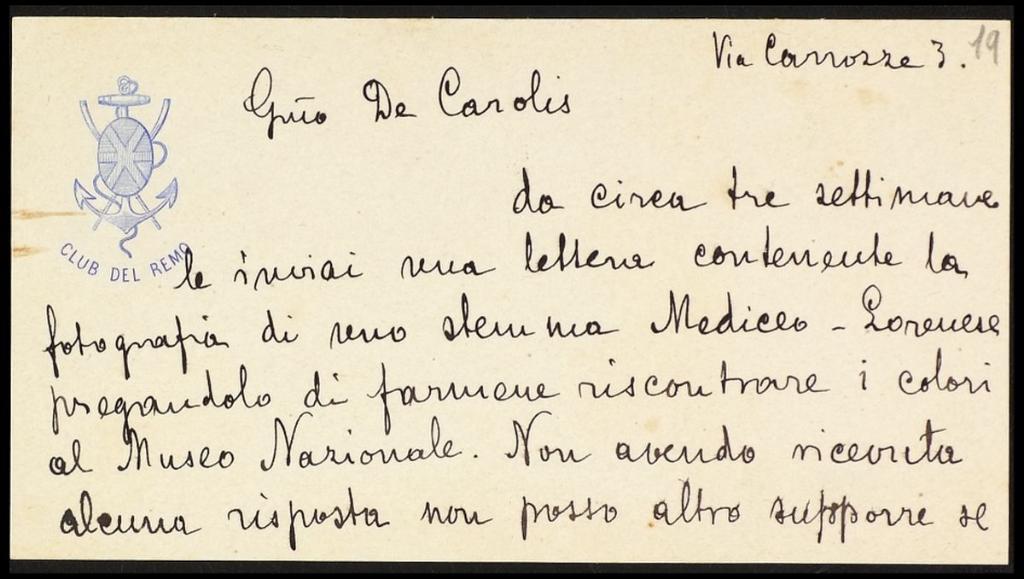 Via Carrozze 3. 19
Gmo De Carolis
da circa tre settimane
CLUB DEL REMO
le inviai una lettera contenente la
fotografia di uno stemma Mediceo - Lorenese
pregandolo di farmene riscontrare i colori
al Museo Nazionale. Non avendo ricevuta
alcuna risposta non posso altro supporre se